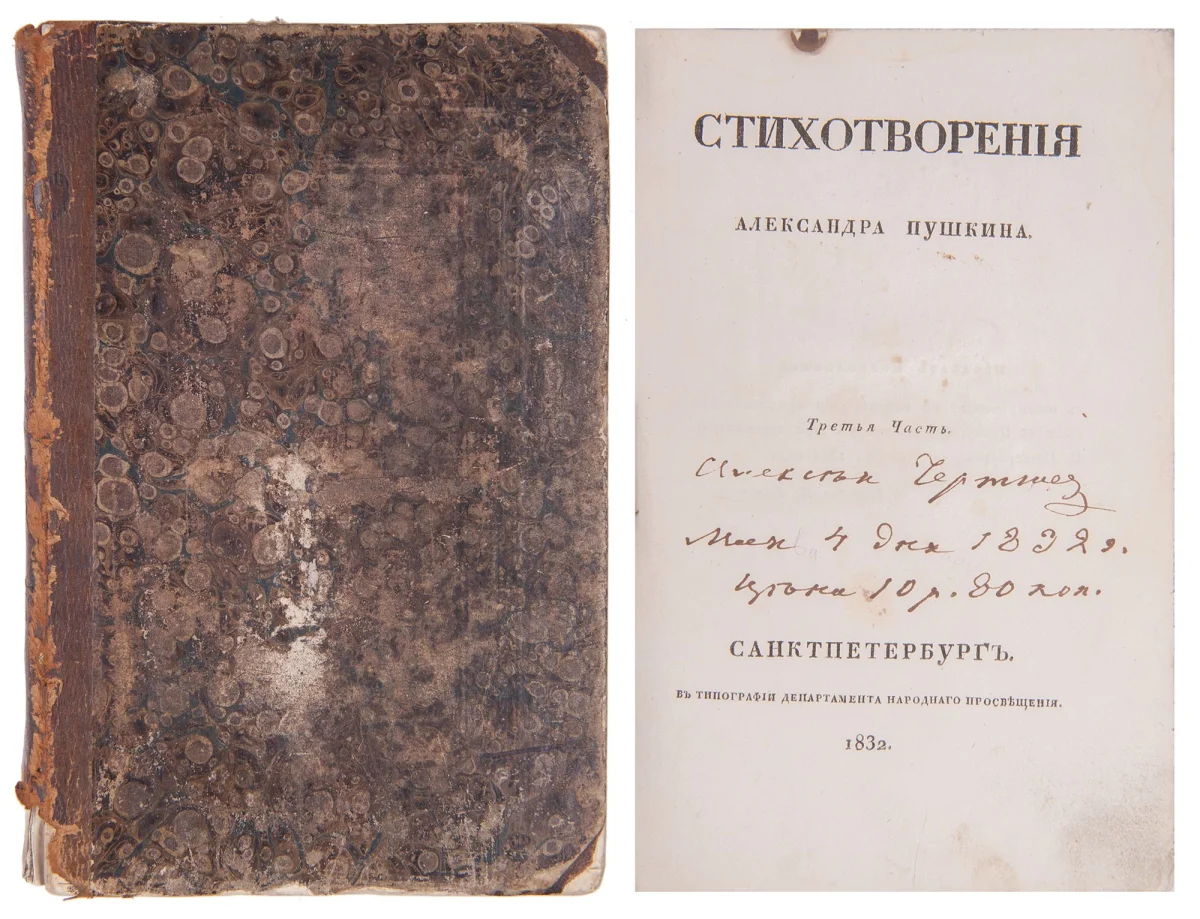 СТИХОТВОРЕНІЯ
АЛЕКСАНДРА ПУШКИНА.
Третья Часть.
Чертков
Мая 4 дня 1832 г.
Цѣна 10 р. 80 коп.
САНКТПЕТЕРБУРГЪ.
ВЪ ТИПОГРАФІИ ДЕПАРТАМЕНТА НАРОДНАГО ПРОСВѢЩЕНІЯ.
1832.